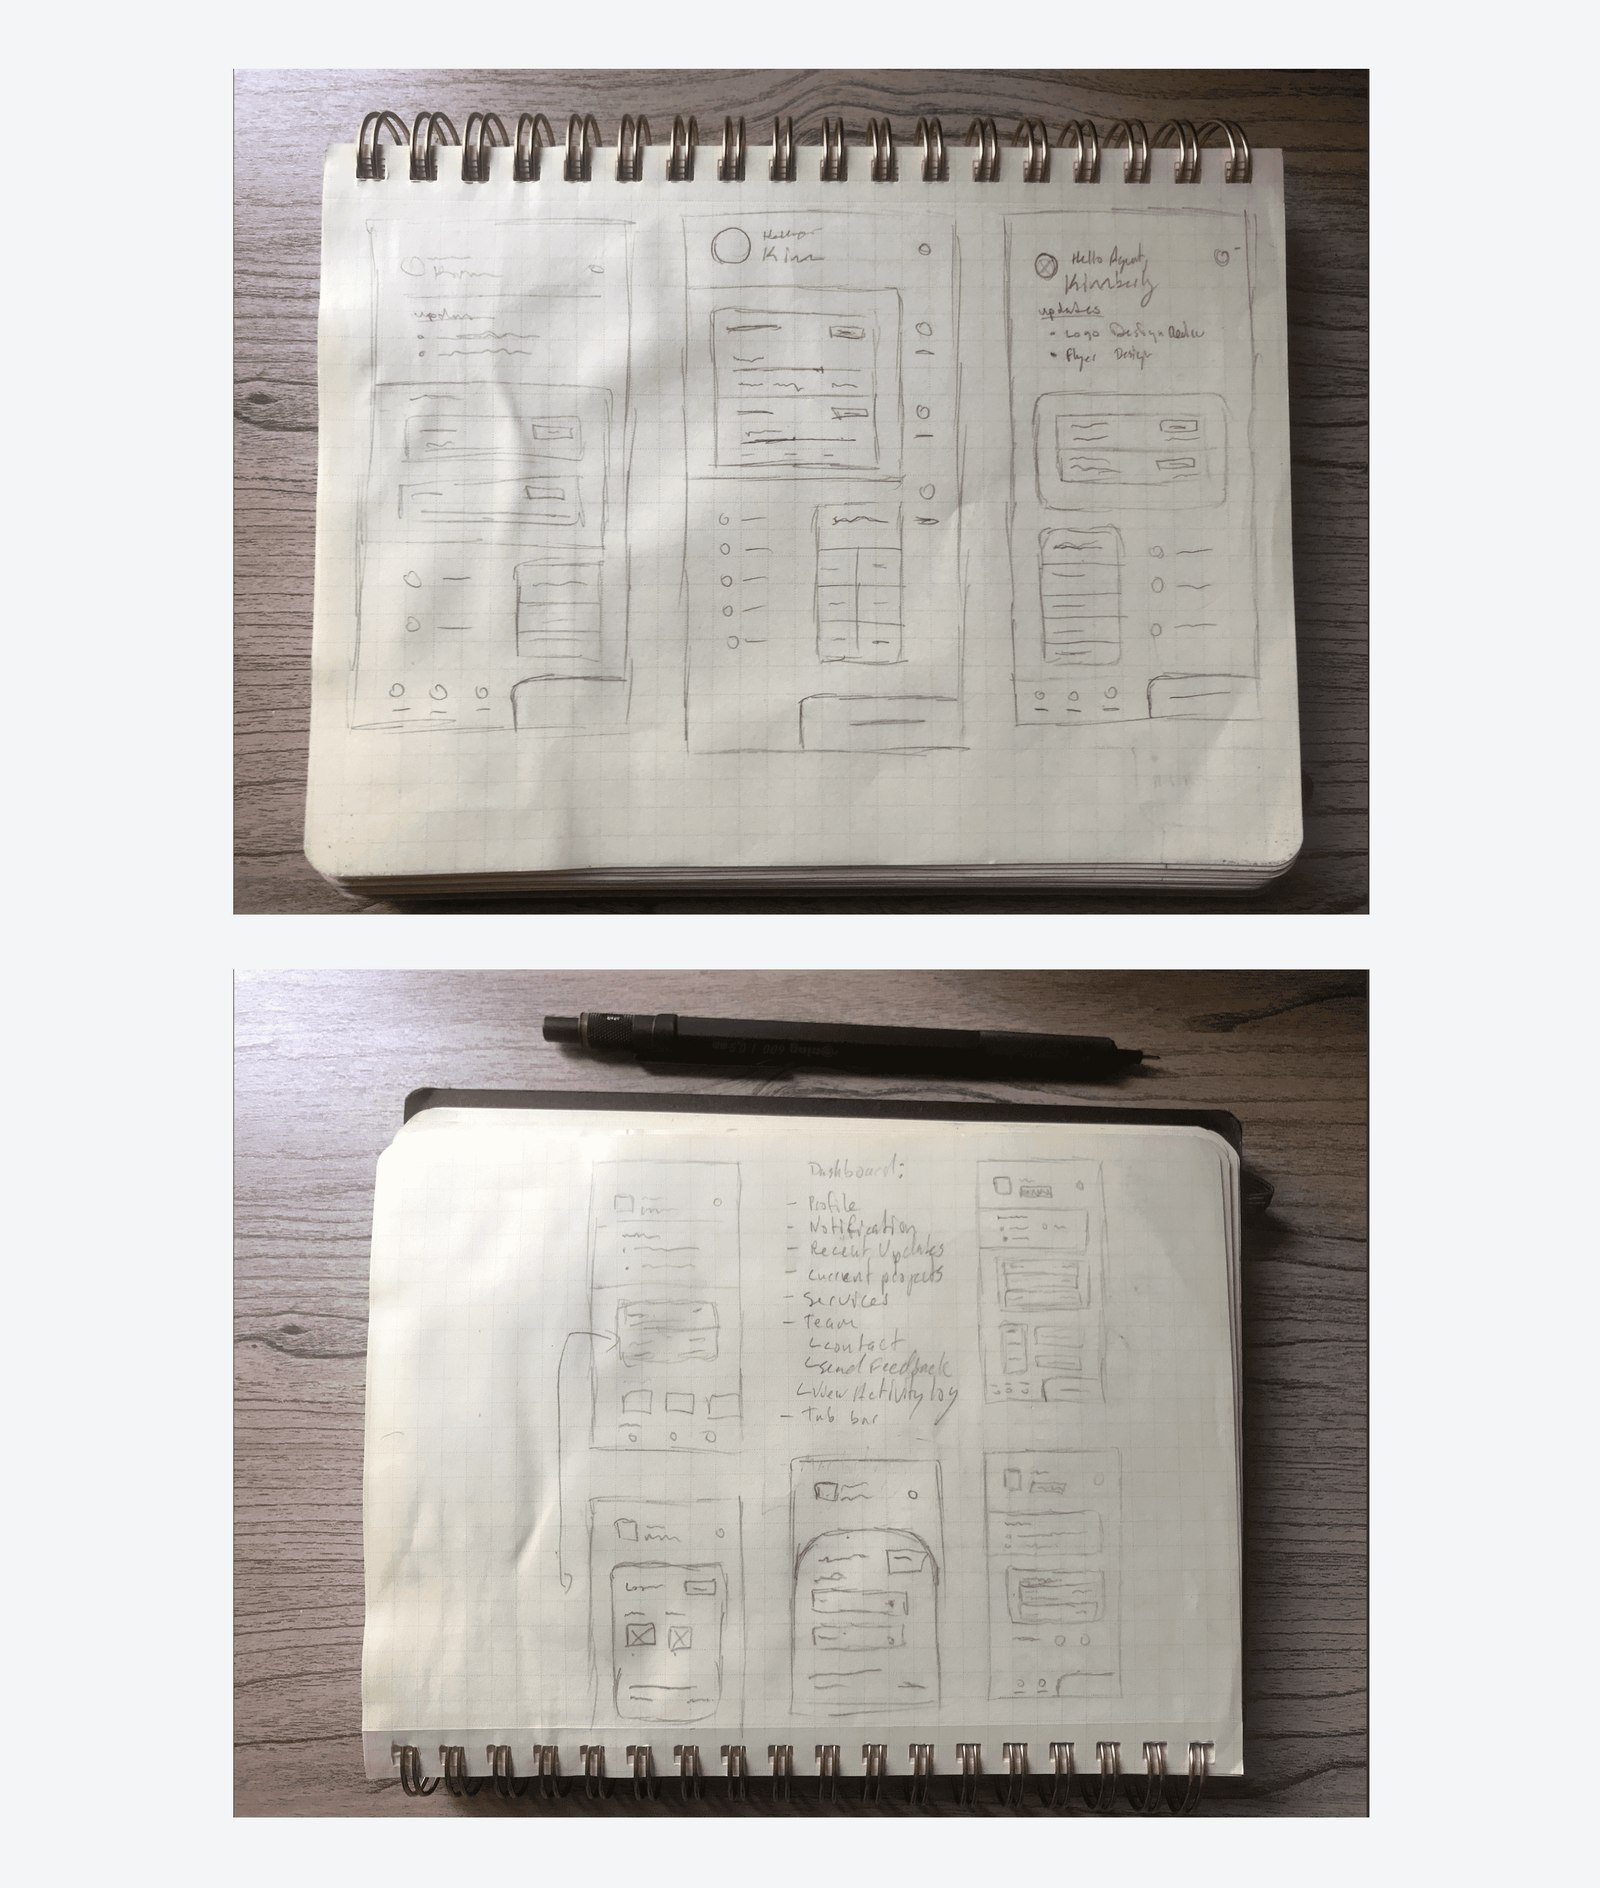 Kim
Kim
Hello Agent,
Kimberly
updates
• Logo Design Review
• Flyer Design
Dashboard:
- Profile
- Notification
- Recent Updates
- current projects
- Services
- Team
contact
send Feedback
View Activity log
- Tab bar